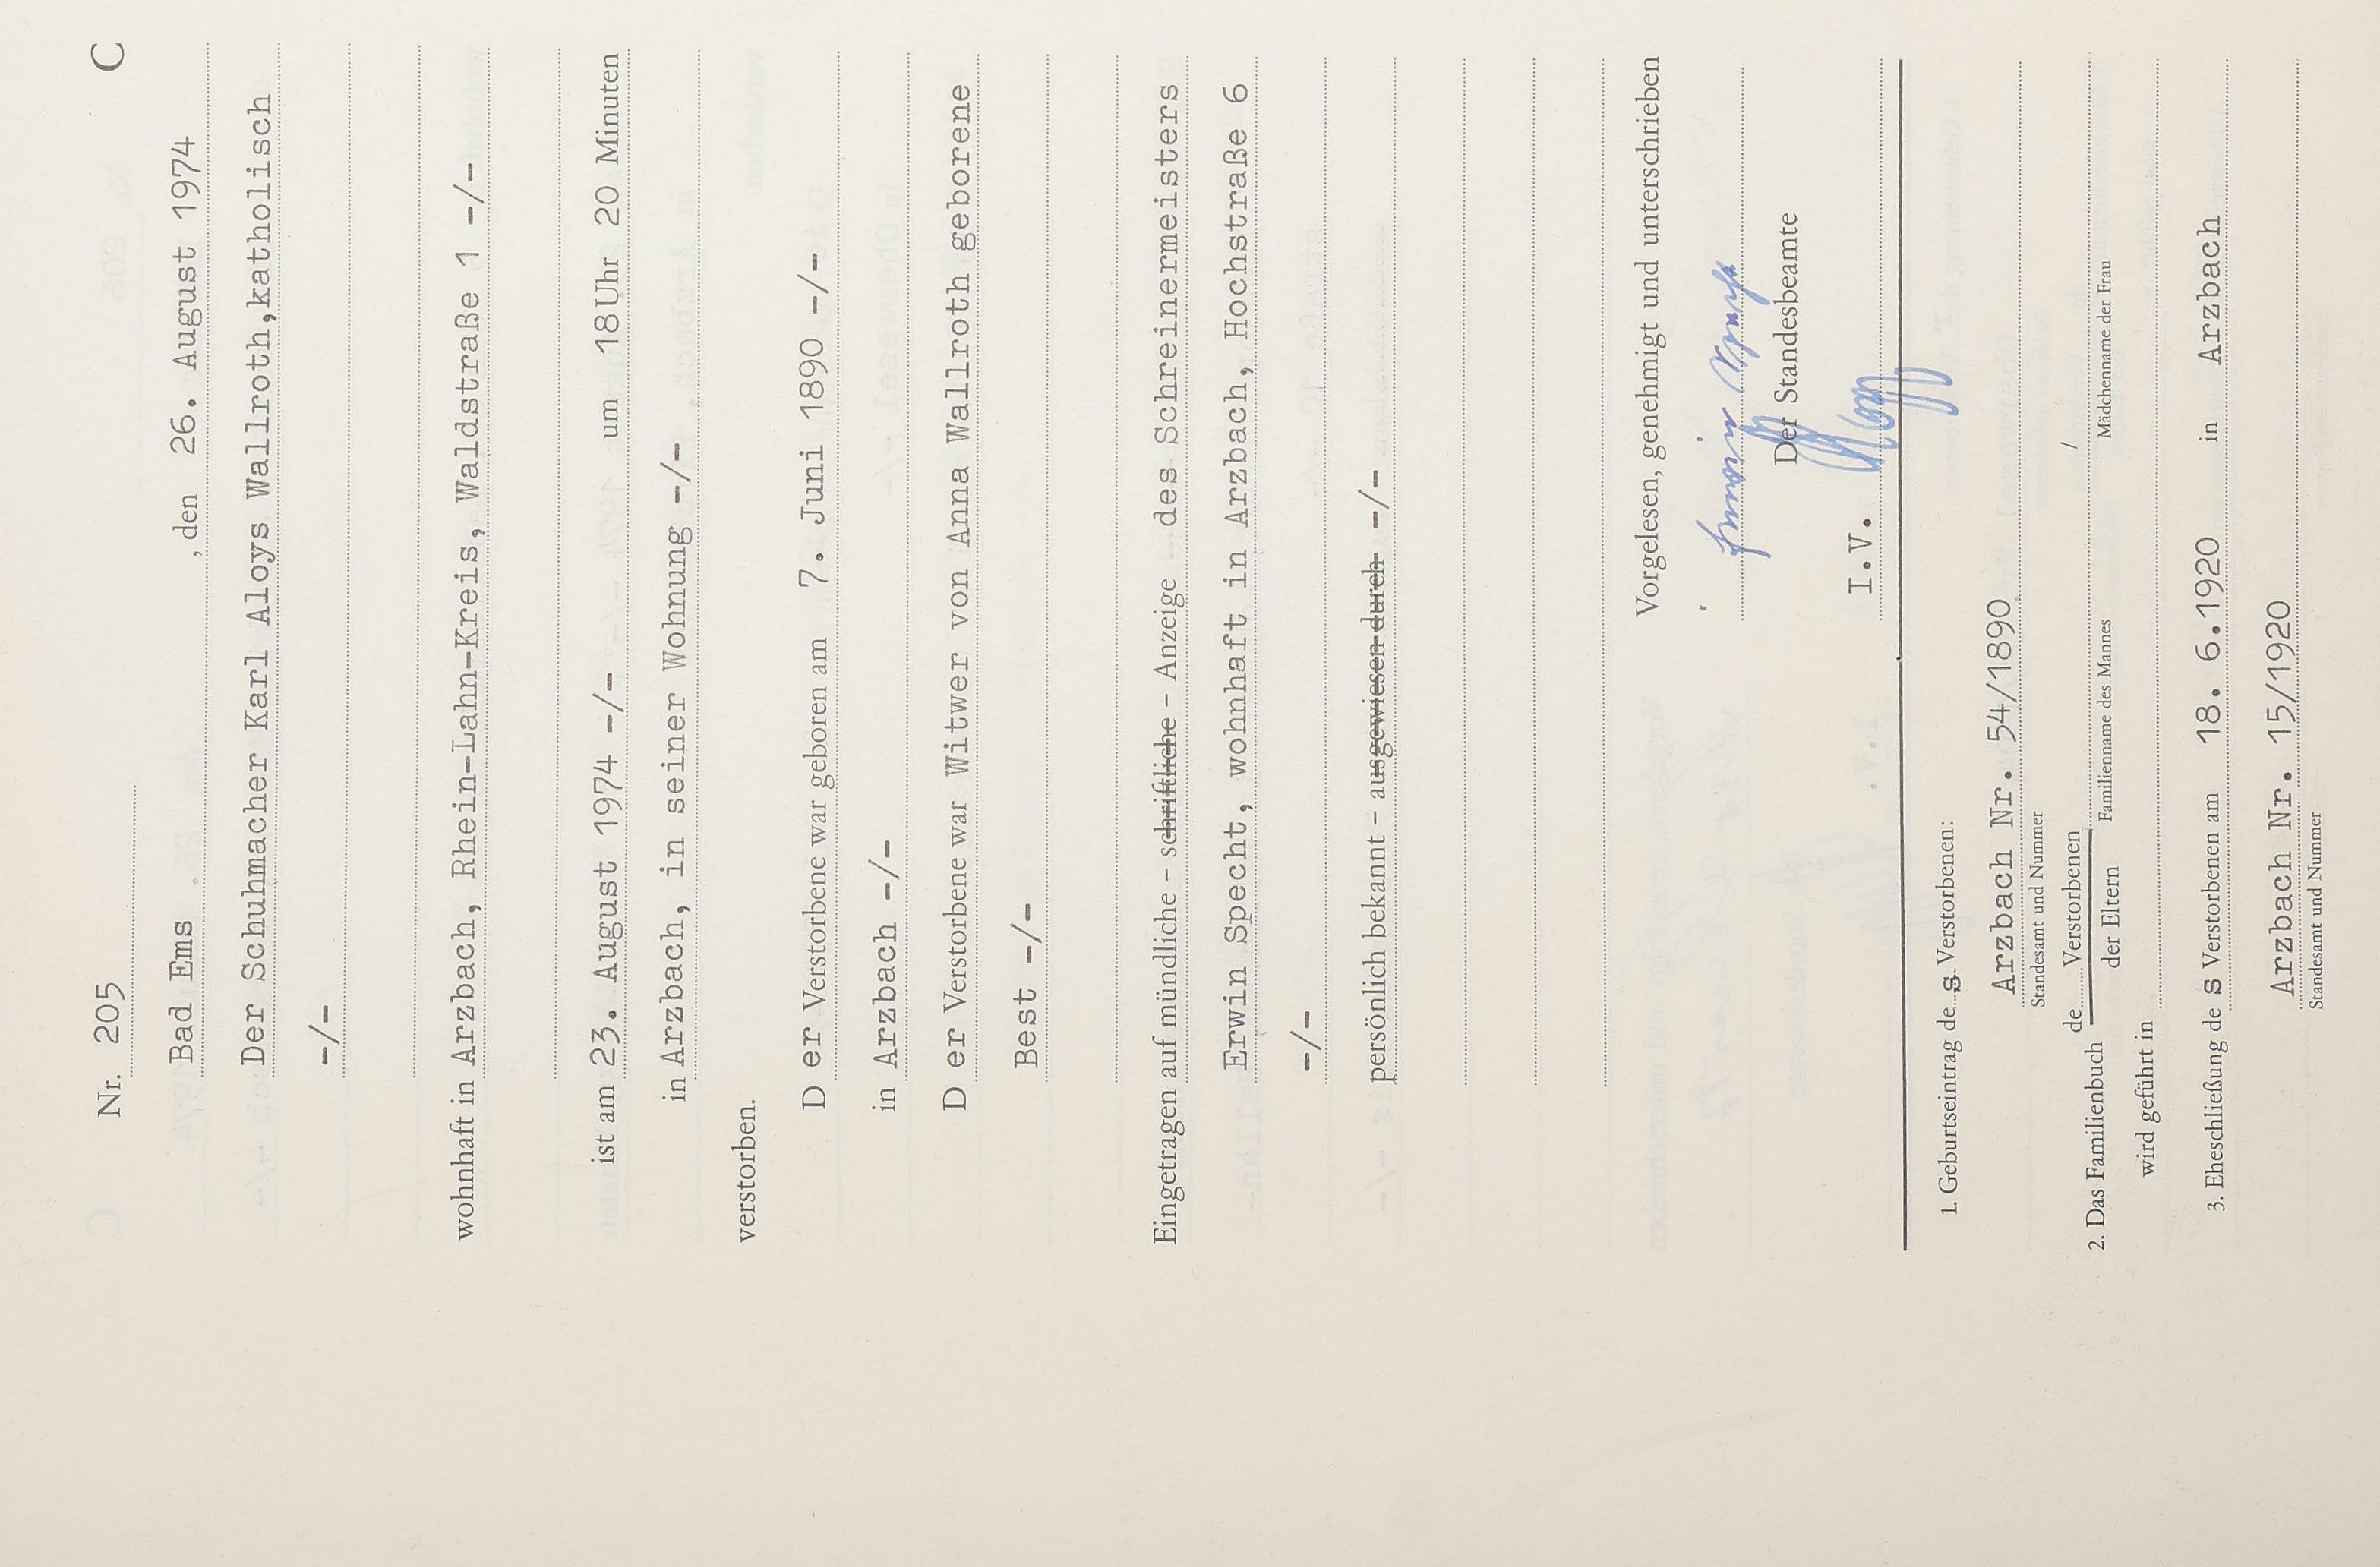 Nr. 205 C
Bad Ems , den 26. August 1974
Der Schuhmacher Karl Aloys Wallroth,katholisch
-/-
wohnhaft in Arzbach, Rhein-Lahn-Kreis, Waldstraße 1 -/-
ist am 23. August 1974 -/- um 18 Uhr 20 Minuten
in Arzbach, in seiner Wohnung -/-
verstorben.
D er Verstorbene war geboren am 7. Juni 1890 -/-
in Arzbach -/-
D er Verstorbene war Witwer von Anna Wallroth geborene
Best -/-
Eingetragen auf mündliche - schriftliche - Anzeige des Schreinermeisters
Erwin Specht, wohnhaft in Arzbach, Hochstraße 6
-/-
persönlich bekannt - ausgewiesen durch -/-
Vorgelesen, genehmigt und unterschrieben
Erwin Specht
Der Standesbeamte
I.V.
1. Geburtseintrag de s Verstorbenen:
Arzbach Nr. 54/1890
Standesamt und Nummer
2. Das Familienbuch de Verstorbenen /
der Eltern Familienname des Mannes Mädchenname der Frau
wird geführt in
3. Eheschließung de s Verstorbenen am 18. 6.1920 in Arzbach
Arzbach Nr. 15/1920
Standesamt und Nummer